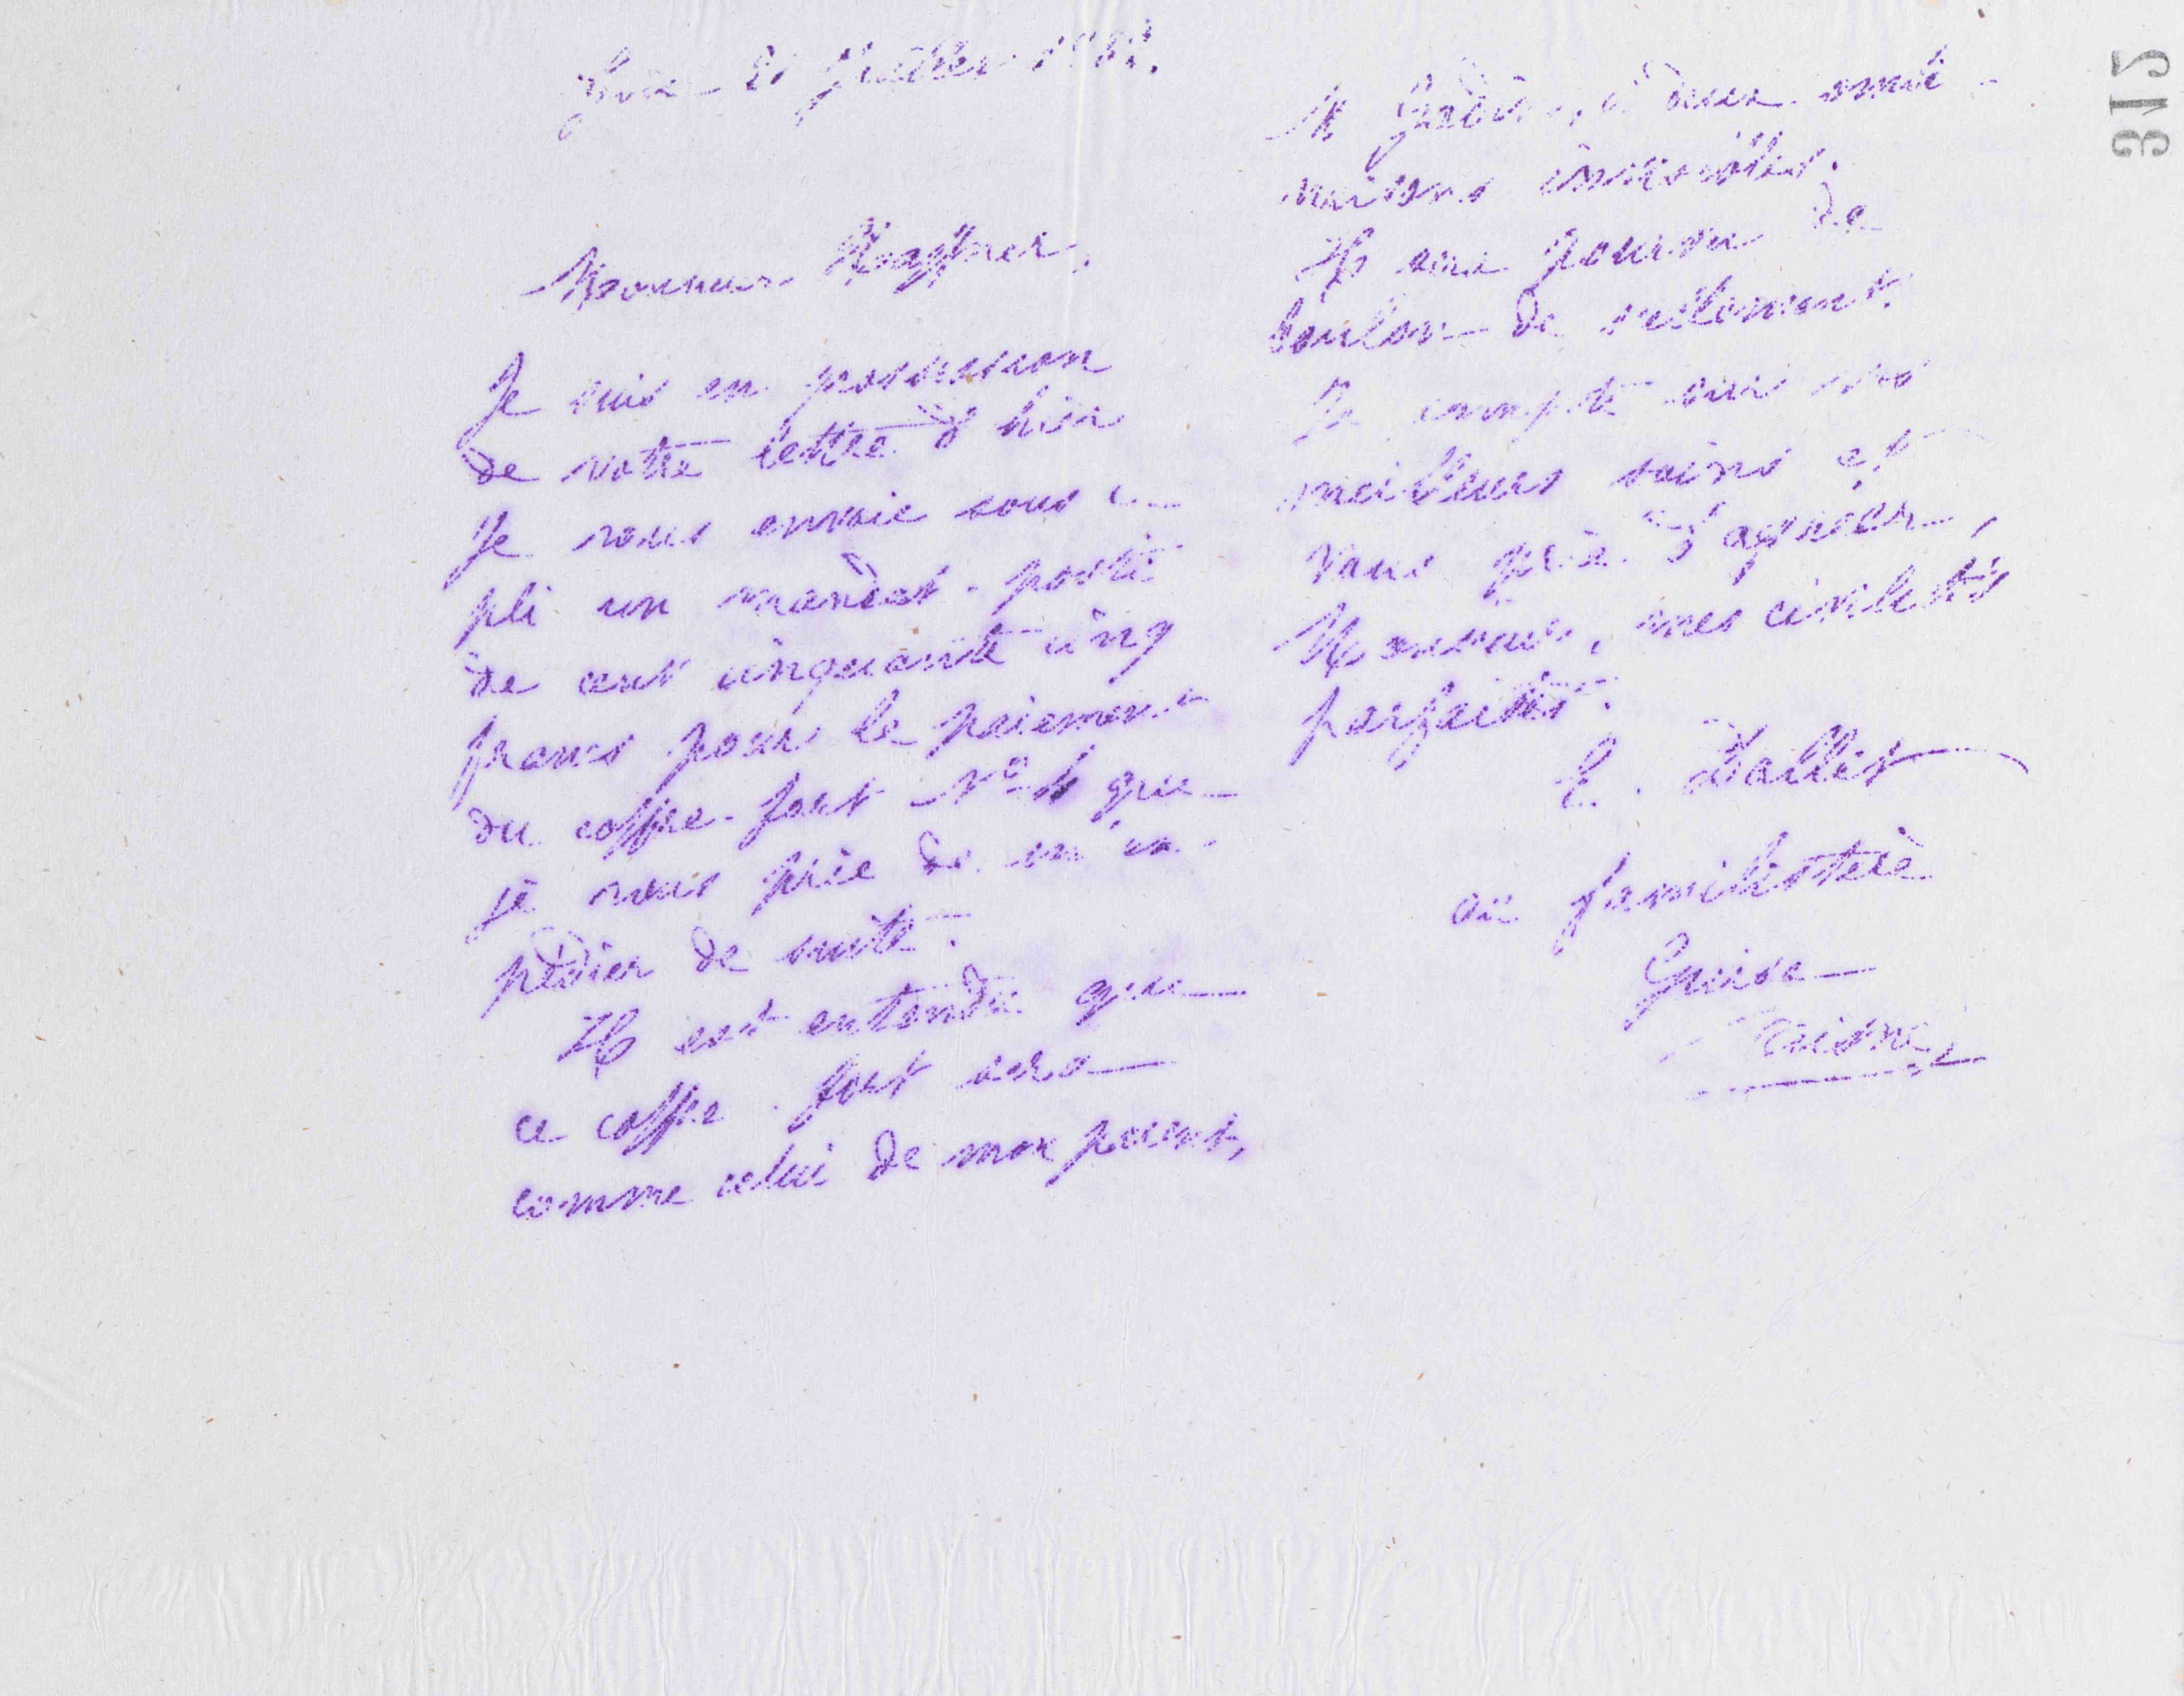 Juillet
Monsieur Haffner,
Je suis en possession
de votre lettre d'hier
Je vous envoie sous ce
pli un mandat-poste
de cent cinquante cinq
francs pour le paiement
du coffre-fort N° 1 que
je vous prie de m'ex-
pédier de suite.
Il est entendu que
ce coffre-fort sera
comme celui de mon parent,
M Godin, à deux combi-
naisons invisibles.
Il sera pourvu de
boulon de scellement.
Je compte sur vos
meilleurs soins et
vous prie d'agréer,
Monsieur, mes civilités
parfaites.
E. Dallet
au familistère
Guise
Aisne
317